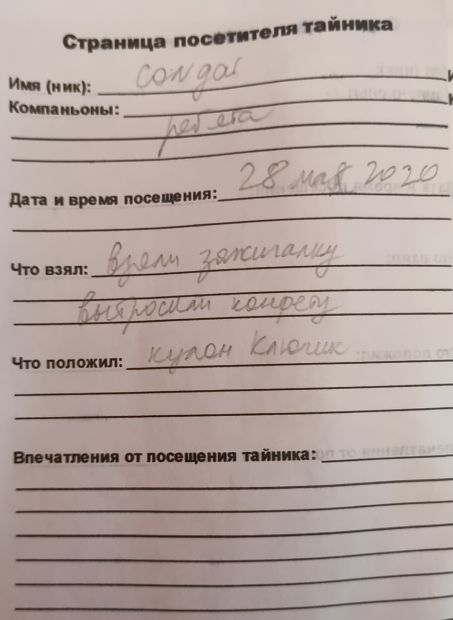 Страница посетителя тайника
Имя (ник): condar
Компаньоны:
ребята
Дата и время посещения: 28 мая 2020
Что взял: взяли зажигалку
выбросили конфету
Что положил: кулон ключик
Впечатления от посещения тайника: